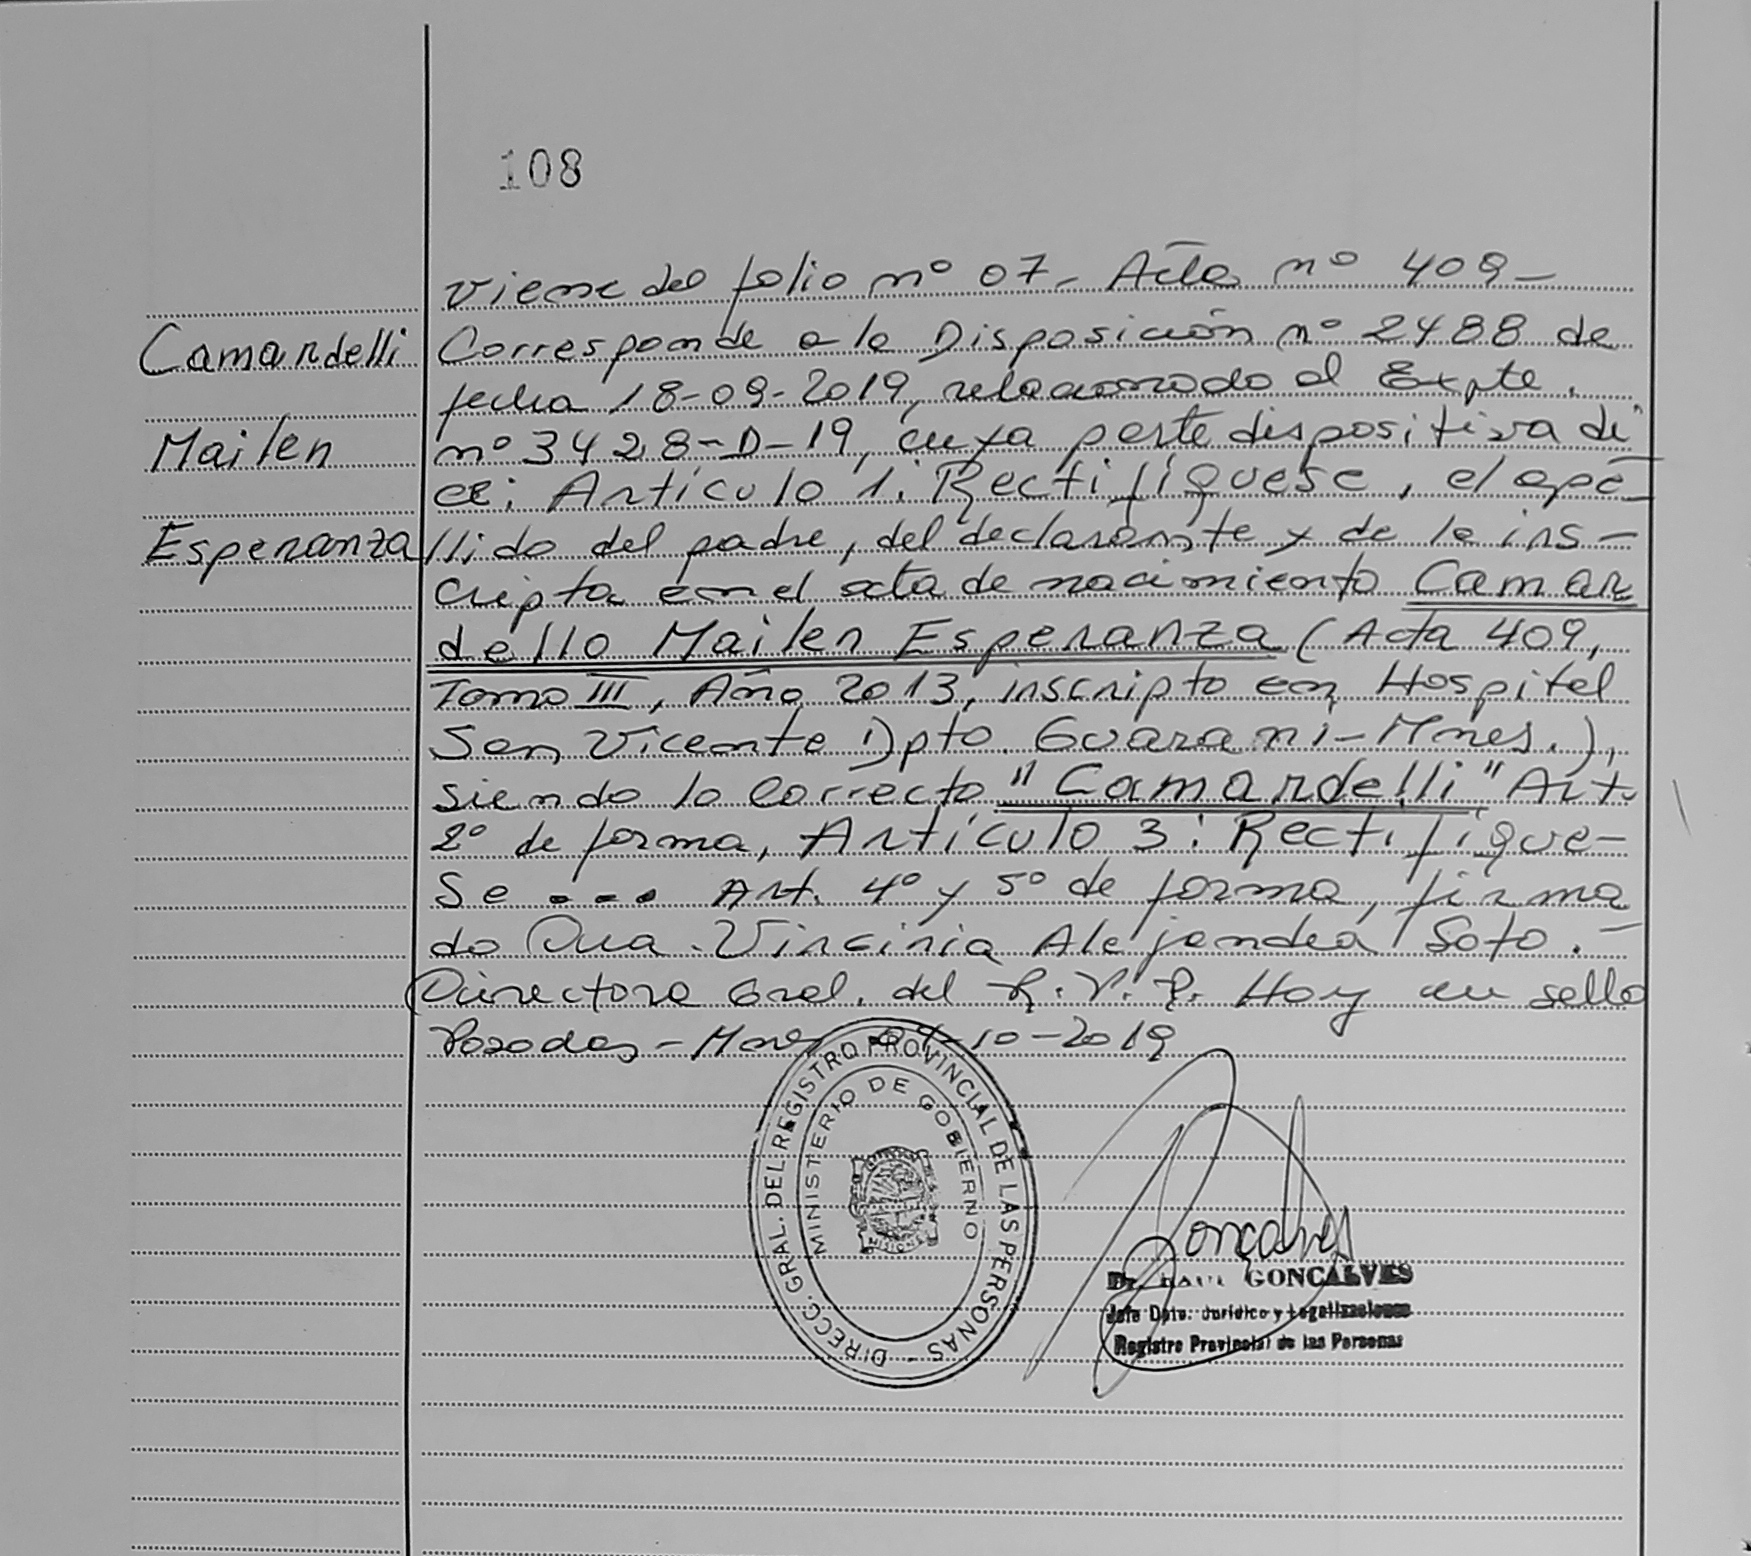 108
Viene del folio nº 07 - Acta nº 409 -
Camardelli
Mailen
Esperanza
Corresponde a la Disposición nº 2488 de
fecha 18-09-2019, relacionado al Expte.
nº 3428-D-19, cuya parte dispositiva di
ce: Artículo 1: Rectifíquese, el ape-
llido del padre, del declarante y de la ins-
cripta en el acta de nacimiento Camar
dello Mailen Esperanza (Acta 409,
Tomo III, Año 2013, inscripto en Hospital
San Vicente Dpto. Guarani-Mnes.),
siendo lo correcto "Camardelli" Art.
2º de forma, Artículo 3: Rectifique-
se ... Art. 4º y 5º de forma, firma
do Dra. Virginia Alejandra Soto. -
Directora Gral. del R.P.P. Hoy un sello
Posadas - Mnes -10-2019
DIRECC. GRAL. DEL REGISTRO PROVINCIAL DE LAS PERSONAS
MINISTERIO DE GOBIERNO
MISIONES
Goncalves
Dr. RAUL GONCALVES
Jefe Dpto. Jurídico y Legalizaciones
Registro Provincial de las Personas